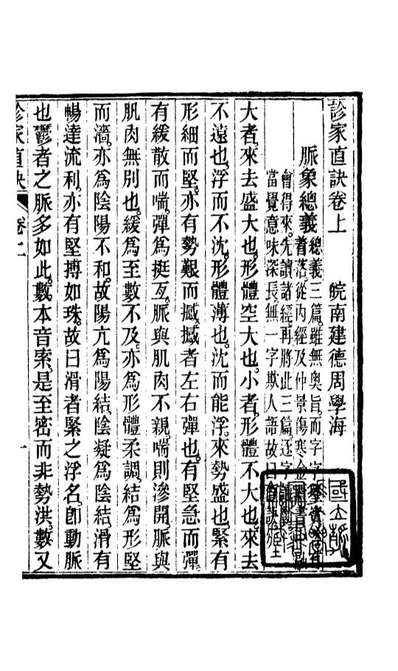 診家直訣卷上
皖南建德周學海
脈象總義
總義三篇雖無奧旨而字字
著落從內經及仲景傷寒金
會得來先讀諸經再將此三篇逐字
當覺意味深長無一字欺人語故曰
大者來去盛大也形體空大也小者形體不大也來去
不遠也浮而不沈形體薄也沈而能浮來勢盛也緊有
形細而堅亦有勢艱而撼撼者左右彈也有堅急而彈
有緩散而喘彈爲挺亙脈與肌肉不親喘則滲開脈與
肌肉無別也緩爲至數不及亦爲形體柔調結爲形堅
而濇亦爲陰陽不和故陽亢爲陽結陰凝爲陰結滑有
暢達流利亦有堅搏如珠故曰滑者緊之浮名卽動脈
也鬱者之脈多如此數本音索是至密而非勢洪數又
診家直訣
卷上
一